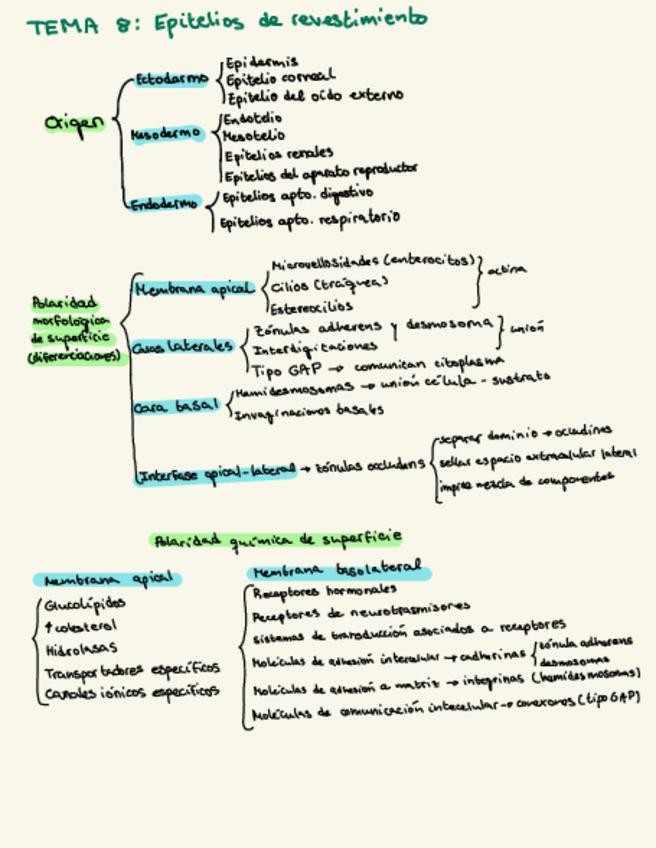 TEMA 8: Epitelios de revestimiento
Origen
Ectodermo
Epidermis
Epitelio corneal
Epitelio del oído externo
Mesodermo
Endotelio
Mesotelio
Epitelios renales
Epitelios del aparato reproductor
Endodermo
Epitelios apto. digestivo
Epitelios apto. respiratorio
Polaridad
morfológica
de superficie
(diferenciaciones)
Membrana apical
Microvellosidades (enterocitos)
Cilios (tráquea)
Estereocilios
actina
Caras laterales
Zónulas adherens y desmosoma
Interdigitaciones
unión
Tipo GAP → comunican citoplasma
Cara basal
Hemidesmosomas → unión célula - sustrato
Invaginaciones basales
Interfase apical-lateral → zónulas occludens
separar dominio → ocludinas
sellar espacio extracelular lateral
impide mezcla de componentes
Polaridad química de superficie
Membrana apical
Glucolípidos
↑ colesterol
Hidrolasas
Transportadores específicos
Canales iónicos específicos
Membrana basolateral
Receptores hormonales
Receptores de neurotrasmisores
Sistemas de transducción asociados a receptores
Moléculas de adhesión intercelular → cadherinas
zónula adherens
desmosomas
Moléculas de adhesión a matriz → integrinas (hemidesmosomas)
Moléculas de comunicación intecelular → conexones (tipo GAP)